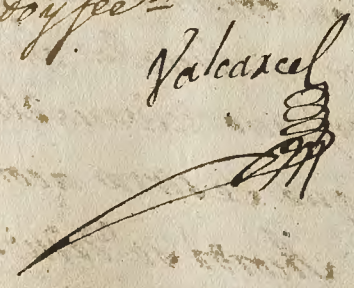 doy fee
Valcarcel